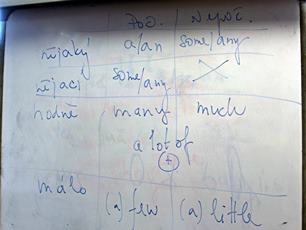 Poč. Nepoč.
nějaký a/an some/any
nějací some/any
hodně many much
a lot of
+
málo (a) few (a) little